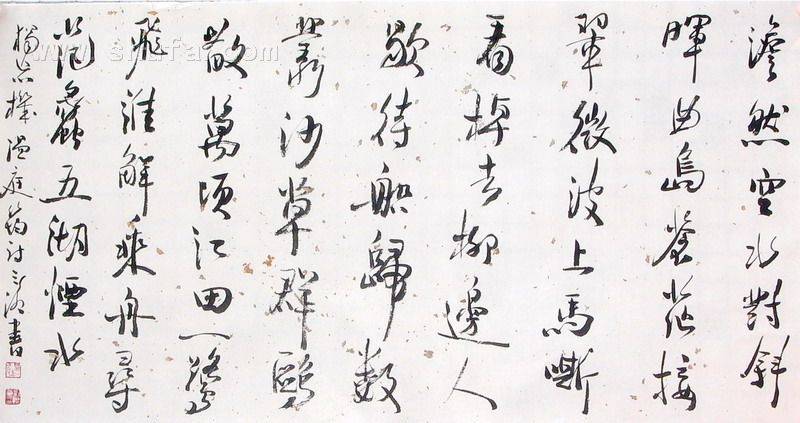 澹然空水對斜
暉曲島蒼茫接
翠微波上馬嘶
看棹去柳邊人
歇待船歸数
叢沙草群鷗
散萬頃江田一鷺
飛誰解乘舟尋
范蠡五湖煙水
獨忘機 温庭筠詩 書